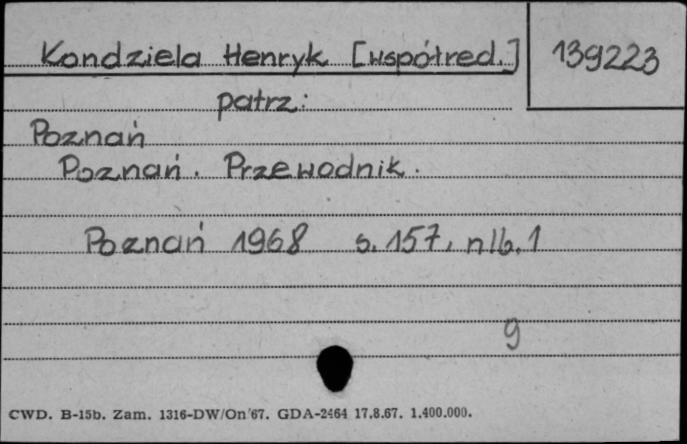 Kondziela Henryk [współred.] 139223
patrz:
Poznań
Poznań. Przewodnik.
Poznań 1968 s. 157, nlb. 1
g
CWD. B-15b. Zam. 1316-DW/On/67. GDA-2464 17.8.67. 1.400.000.